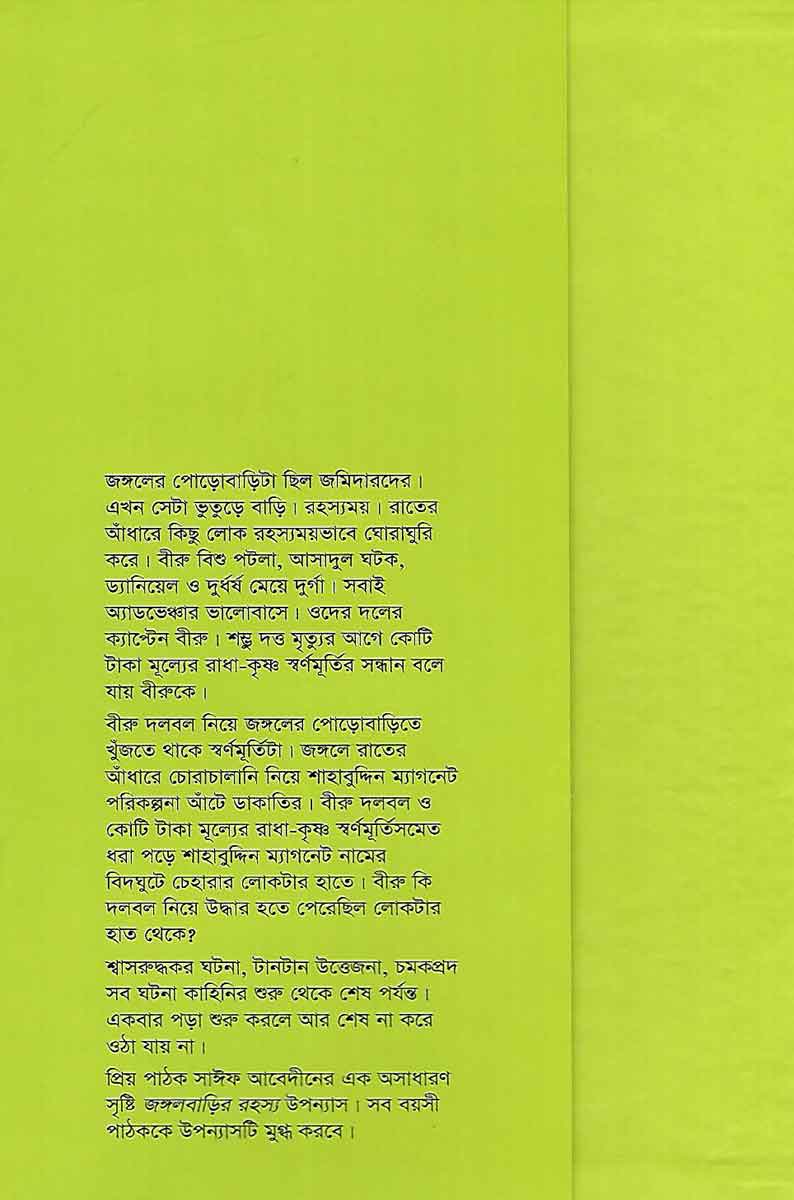 জঙ্গলের পোড়োবাড়িটা ছিল জমিদারদের।
এখন সেটা ভুতুড়ে বাড়ি। রহস্যময়। রাতের
আঁধারে কিছু লোক রহস্যময়ভাবে ঘোরাঘুরি
করে। বীরু বিশু পটলা, আসাদুল ঘটক,
ড্যানিয়েল ও দুর্ধর্ষ মেয়ে দুর্গা। সবাই
অ্যাডভেঞ্চার ভালোবাসে। ওদের দলের
ক্যাপ্টেন বীরু। শম্ভু দত্ত মৃত্যুর আগে কোটি
টাকা মূল্যের রাধা-কৃষ্ণ স্বর্ণমূর্তির সন্ধান বলে
যায় বীরুকে।
বীরু দলবল নিয়ে জঙ্গলের পোড়োবাড়িতে
খুঁজতে থাকে স্বর্ণমূর্তিটা। জঙ্গলে রাতের
আঁধারে চোরাচালানি নিয়ে শাহাবুদ্দিন ম্যাগনেট
পরিকল্পনা আঁটে ডাকাতির। বীরু দলবল ও
কোটি টাকা মূল্যের রাধা-কৃষ্ণ স্বর্ণমূর্তিসমেত
ধরা পড়ে শাহাবুদ্দিন ম্যাগনেট নামের
বিদঘুটে চেহারার লোকটার হাতে। বীরু কি
দলবল নিয়ে উদ্ধার হতে পেরেছিল লোকটার
হাত থেকে?
শ্বাসরুদ্ধকর ঘটনা, টানটান উত্তেজনা, চমকপ্রদ
সব ঘটনা কাহিনির শুরু থেকে শেষ পর্যন্ত।
একবার পড়া শুরু করলে আর শেষ না করে
ওঠা যায় না।
প্রিয় পাঠক সাঈফ আবেদীনের এক অসাধারণ
সৃষ্টি জঙ্গলবাড়ির রহস্য উপন্যাস। সব বয়সী
পাঠককে উপন্যাসটি মুগ্ধ করবে।